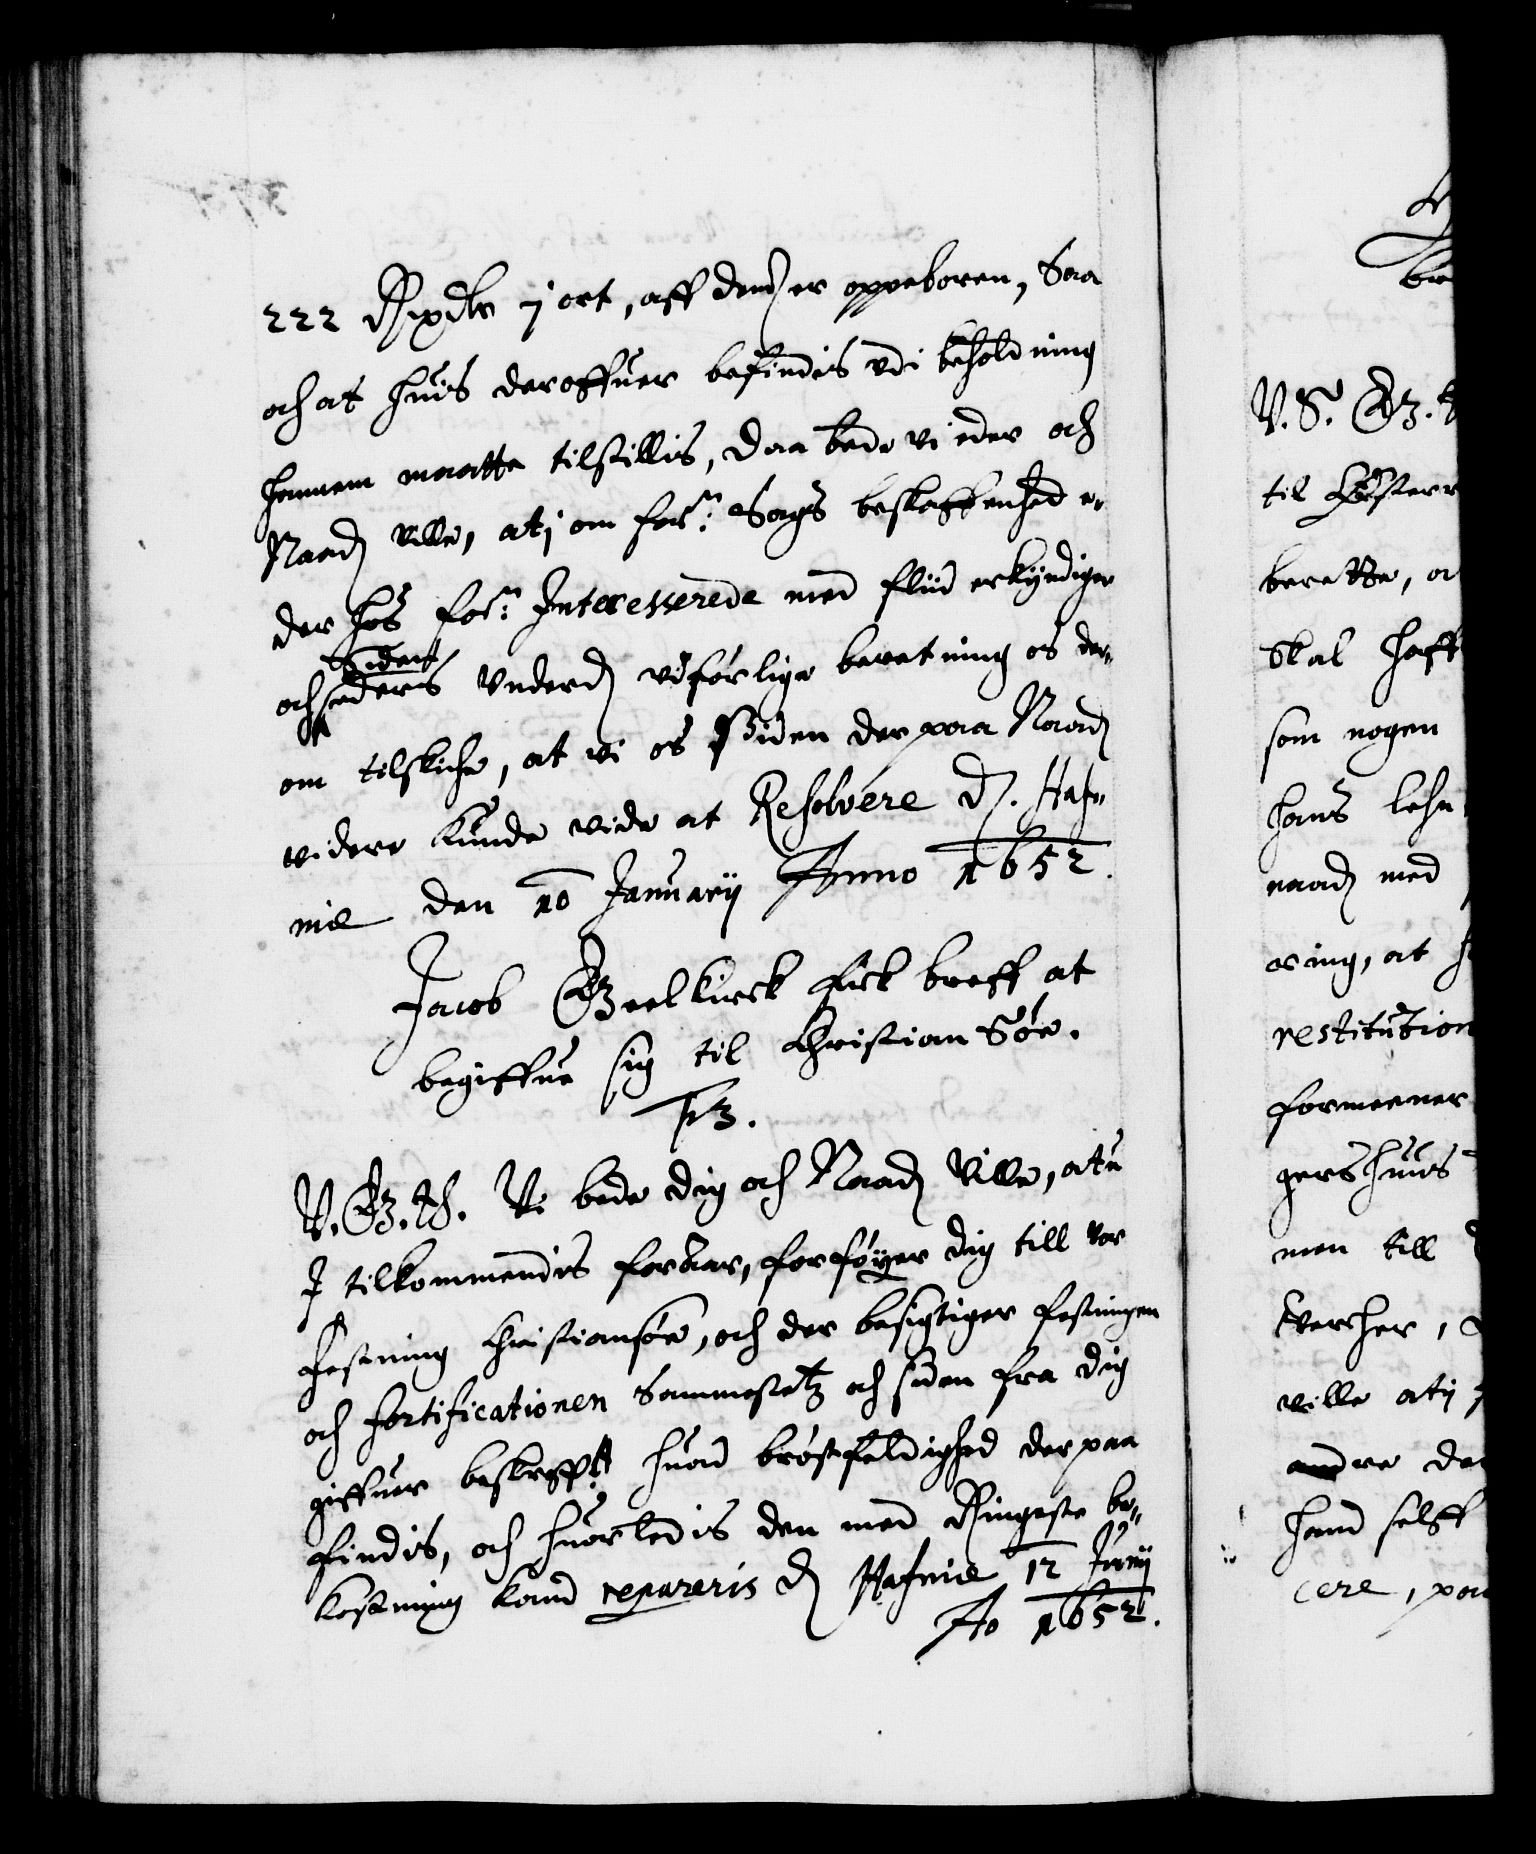 222 Rixdlr j ort, aff dem er oppeboren, Saa
och at huis deroffuer befindis vdi beholdning
hannem maatte tilstillis, Daa bede vi eder och
Naad: ville, at j om for:ne Sags beskaffenhed e,,
der hos for:ne Interesserede med fliid erkyndiger
och siden eders Underd: vdførlige beretning os der,,
om tilskicke, at vi os Siden der paa Naad:
videre kunde vide at Resolvere D. Hafn,,
niæ den 10 Januarij Anno 1652.
Jacob Geelkirck fick breff at
begiffue sig til Christian Söe.
F3.
V. G. T. Vi bede dig och Naad: ville, atu
I tilkommendis foraar, forføyer dig till vor
Festning Christiansöe, och der besigtiger festningen
och fortificationen Sammestetz och siden fra dig
giffuer beskreffet huad brøstfeldighed der paa
findis, och huorledis den med Ringeste be,,
kostning kand repareris D: Hafniæ 12 Junij
Ao 1652.
V. S. G. T
til
berette, o
Skal haff
som nogen
hans lehn
naad: med
ering, at h
restitution
formeener
gershuus
men till
Vercher,
ville atj
andre de
hand selff
cere, paa